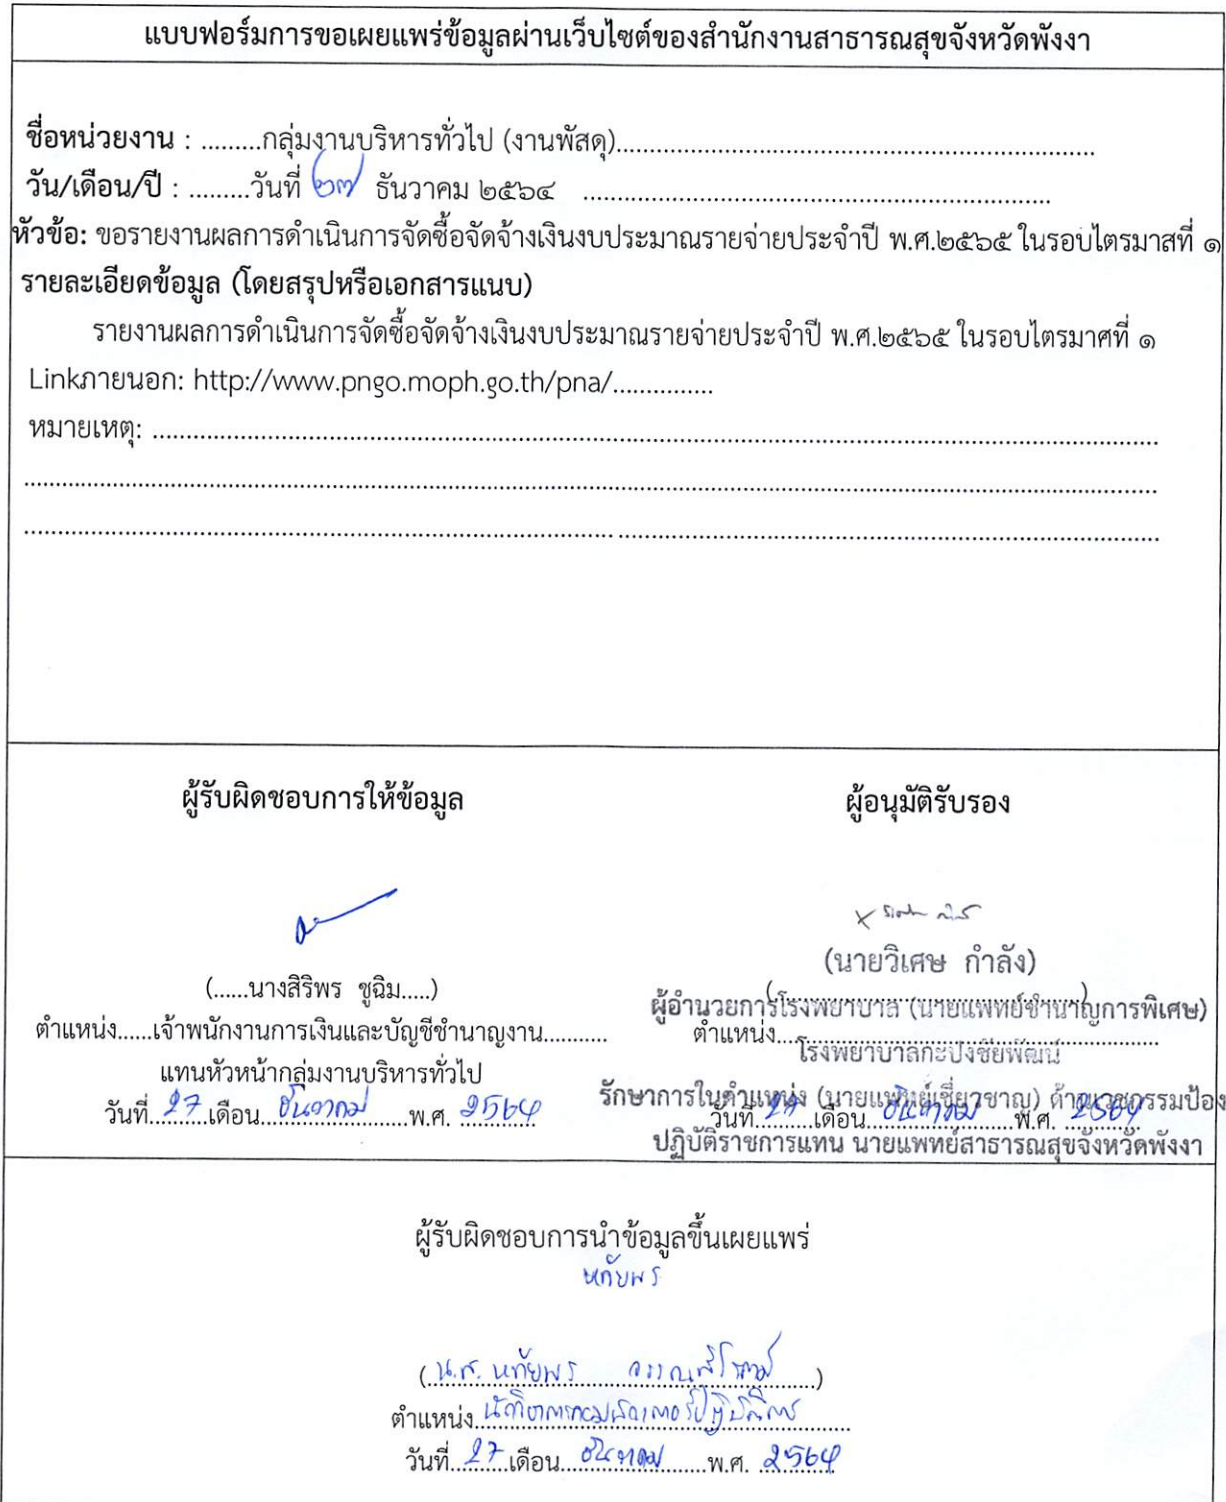 แบบฟอร์มการขอเผยแพร่ข้อมูลผ่านเว็บไซต์ของสำนักงานสาธารณสุขจังหวัดพังงา
ชื่อหน่วยงาน : .........กลุ่มงานบริหารทั่วไป (งานพัสดุ).......................................................................
วัน/เดือน/ปี : .........วันที่ ๒๗ ธันวาคม ๒๕๖๔ ......................................................................
หัวข้อ: ขอรายงานผลการดำเนินการจัดซื้อจัดจ้างเงินงบประมาณรายจ่ายประจำปี พ.ศ.๒๕๖๕ ในรอบไตรมาสที่ ๑
รายละเอียดข้อมูล (โดยสรุปหรือเอกสารแนบ)
รายงานผลการดำเนินการจัดซื้อจัดจ้างเงินงบประมาณรายจ่ายประจำปี พ.ศ.๒๕๖๕ ในรอบไตรมาศที่ ๑
Linkภายนอก: http://www.pngo.moph.go.th/pna/...............
หมายเหตุ: ......................................................................
ผู้รับผิดชอบการให้ข้อมูล
(......นางสิริพร ชูฉิม.....)
ตำแหน่ง......เจ้าพนักงานการเงินและบัญชีชำนาญงาน...........
แทนหัวหน้ากลุ่มงานบริหารทั่วไป
วันที่ 27 เดือน ธันวาคม พ.ศ. 2564
ผู้อนุมัติรับรอง
(นายวิเศษ กำลัง)
ผู้อำนวยการโรงพยาบาล (นายแพทย์ชำนาญการพิเศษ)
ตำแหน่ง
โรงพยาบาลกะปงชัยพัฒน์
รักษาการในตำแหน่ง (นายแพทย์เชี่ยวชาญ) ด้านเวชกรรมป้อง
วันที่ 27 เดือน ธันวาคม พ.ศ. 2564
ปฏิบัติราชการแทน นายแพทย์สาธารณสุขจังหวัดพังงา
ผู้รับผิดชอบการนำข้อมูลขึ้นเผยแพร่
หทัยพร
(น.ส. หทัยพร
ตำแหน่ง นักวิชาการคอมพิวเตอร์ปฏิบัติการ
วันที่ 27 เดือน ธันวาคม พ.ศ. 2564